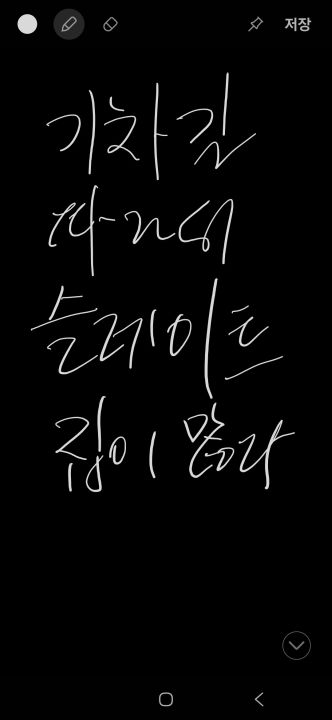 저장
기차길
따라
슬레이트
집이 많다